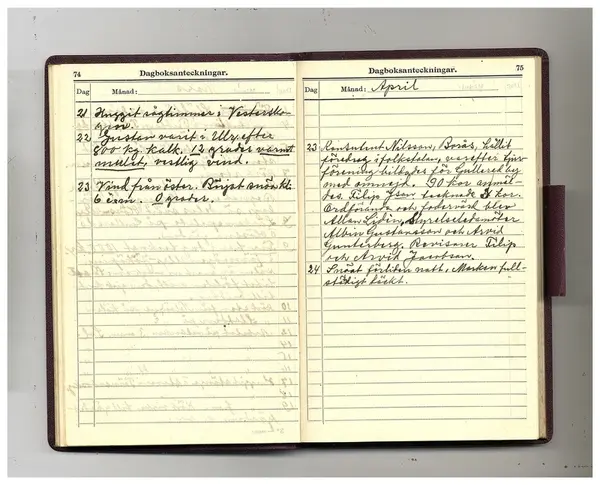 74
Dagboksanteckningar.
Dag
Månad:
21 Huggit sågtimmer i Vestersko-
gen.
22 Gustav varit i Ulr. efter
800 kg. kalk. 12 grader varmt
mulet, vestlig vind.
23 Vind från öster. Börjat snöa kl.
6 e.m. 0 grader.
75
Dagboksanteckningar.
Dag
Månad: April
23 Konsulent Nilsson, Borås, hållit
föredrag i folkskolan, varefter tjur-
förening bildades för Gullered by
med omnejd. 90 kor anmäl-
des. Filip Isac tecknade 8 kor.
Ordförande och fodervärd blev
Allan Lidin, Styrelseledamöter
Albin Gustavsson och Arvid
Gunterberg. Revisorer Filip
och Arvid Jacobson.
24 Snöat förliden natt, Marken full-
ständigt täckt.